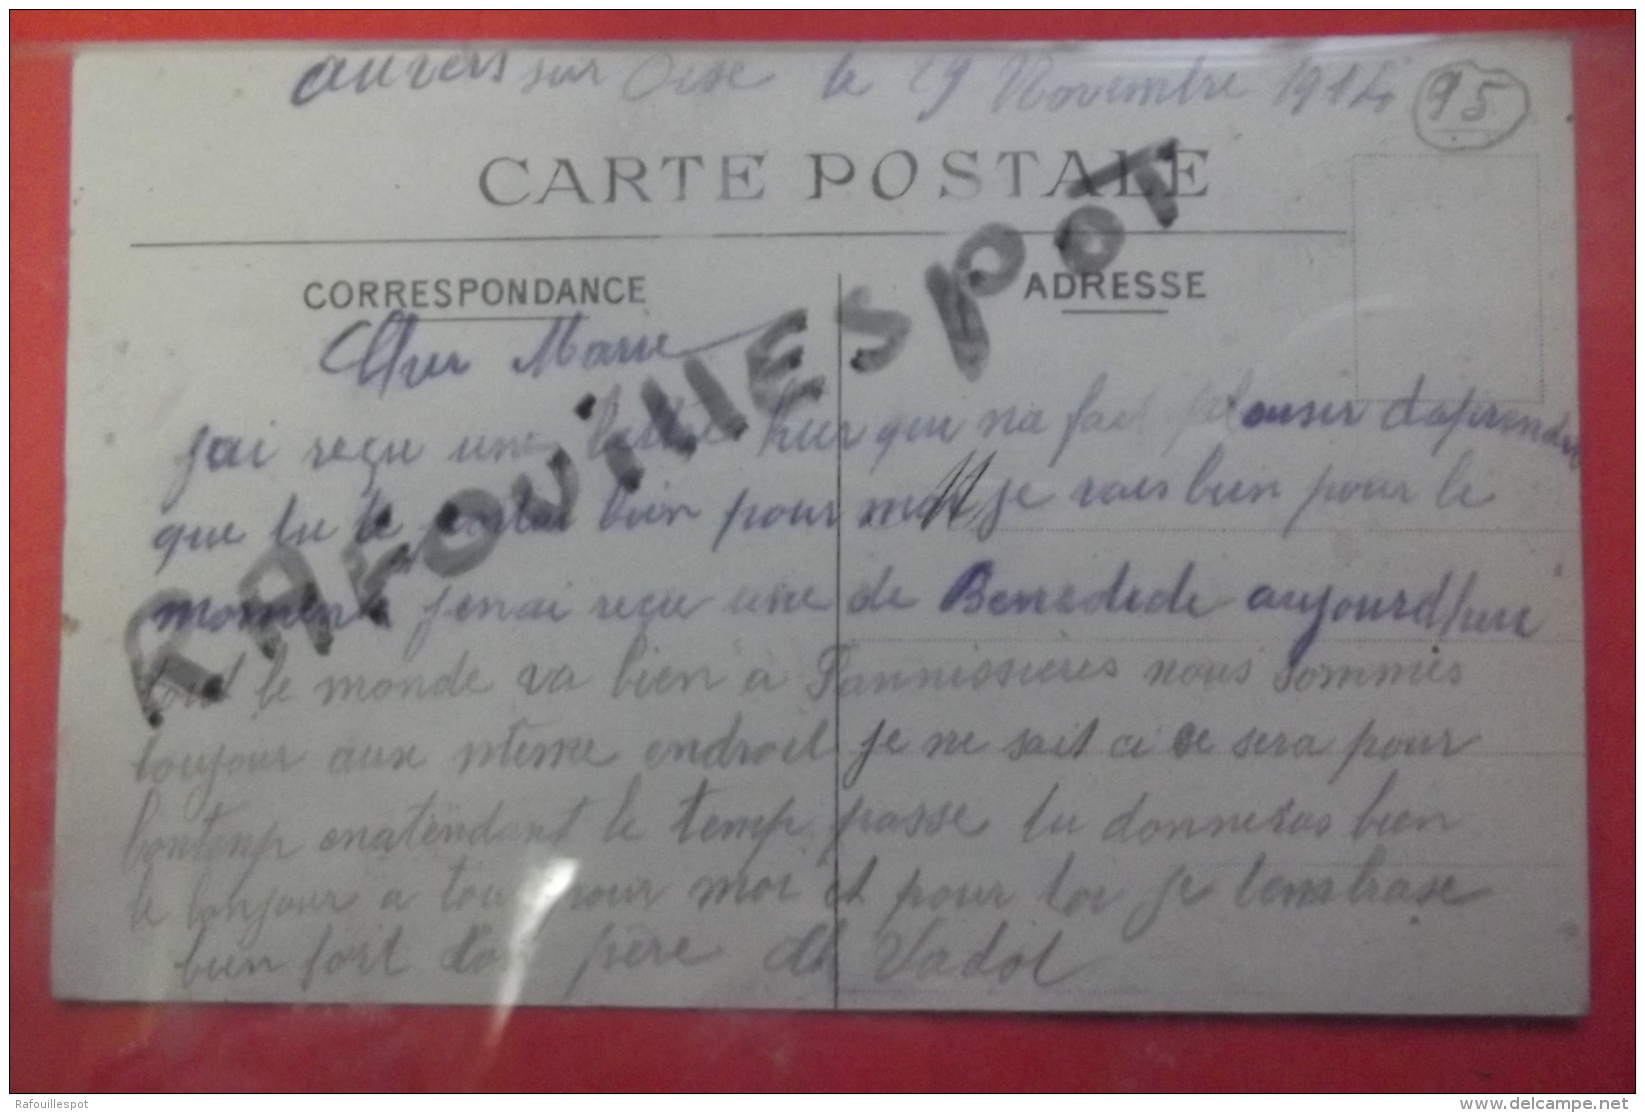 auvers sur Oise le 19 Novembre 1914
95
CARTE POSTALE
CORRESPONDANCE
ADRESSE
RAFOUILLESPOT
Cher Marie
jai reçu une lettre hier que ma fait plaisir daprendre
que tu te portai bien pour moi je vais bien pour le
moment jenai reçu une de Benedede aujourdhui
tout le monde va bien a Pannissieres nous sommes
toujour aux meme endroit je ne sait ci ce sera pour
lontemp enatendant le temp passe tu donneras bien
le bonjour a tous pour moi et pour toi je tembrase
bien fort ton père Vadot
Rafouillespot
www.delcampe.net